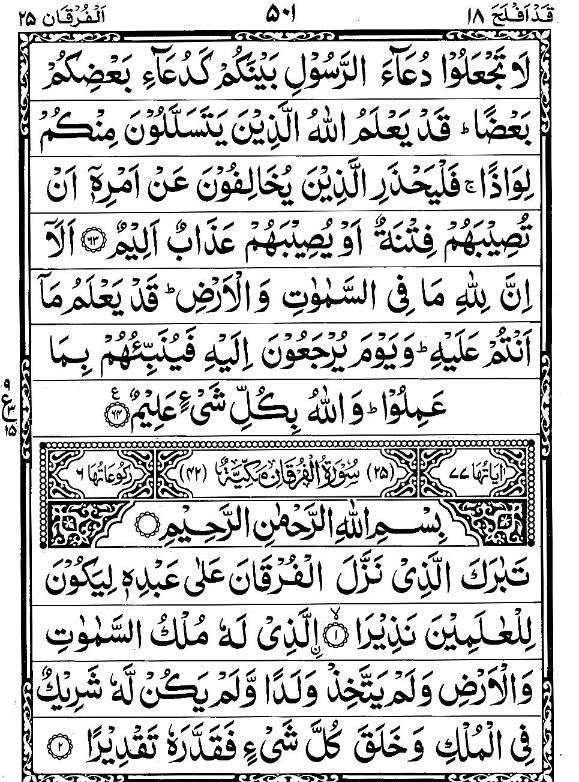 قَدْ اَفْلَحَ ١٨ ٥٠١ اَلْفُرْقَان ٢٥
لَا تَجْعَلُوْا دُعَآءَ الرَّسُوْلِ بَيْنَكُمْ كَدُعَآءِ بَعْضِكُمْ
بَعْضًا ؕ قَدْ يَعْلَمُ اللّٰهُ الَّذِيْنَ يَتَسَلَّلُوْنَ مِنْكُمْ
لِوَاذًا ۚ فَلْيَحْذَرِ الَّذِيْنَ يُخَالِفُوْنَ عَنْ اَمْرِهٖٓ اَنْ
تُصِيْبَهُمْ فِتْنَةٌ اَوْ يُصِيْبَهُمْ عَذَابٌ اَلِيْمٌ ۝٦٣ اَلَآ
اِنَّ لِلّٰهِ مَا فِى السَّمٰوٰتِ وَالْاَرْضِ ؕ قَدْ يَعْلَمُ مَآ
اَنْتُمْ عَلَيْهِ ؕ وَيَوْمَ يُرْجَعُوْنَ اِلَيْهِ فَيُنَبِّئُهُمْ بِمَا
عَمِلُوْا ؕ وَاللّٰهُ بِكُلِّ شَىْءٍ عَلِيْمٌ ۝٦٤ ع
٩
ع ٣
١٥
اٰيَاتُهَا ٧٧ (٢٥) سُوْرَةُ الْفُرْقَانِ مَكِّيَّةٌ (٤٢) رُكُوْعَاتُهَا ٦
بِسْمِ اللّٰهِ الرَّحْمٰنِ الرَّحِيْمِ ۝
تَبٰرَكَ الَّذِىْ نَزَّلَ الْفُرْقَانَ عَلٰى عَبْدِهٖ لِيَكُوْنَ
لِلْعٰلَمِيْنَ نَذِيْرَا ۝١ ۙ اِۨلَّذِىْ لَهٗ مُلْكُ السَّمٰوٰتِ
وَالْاَرْضِ وَلَمْ يَتَّخِذْ وَلَدًا وَّلَمْ يَكُنْ لَّهٗ شَرِيْكٌ
فِى الْمُلْكِ وَخَلَقَ كُلَّ شَىْءٍ فَقَدَّرَهٗ تَقْدِيْرًا ۝٢